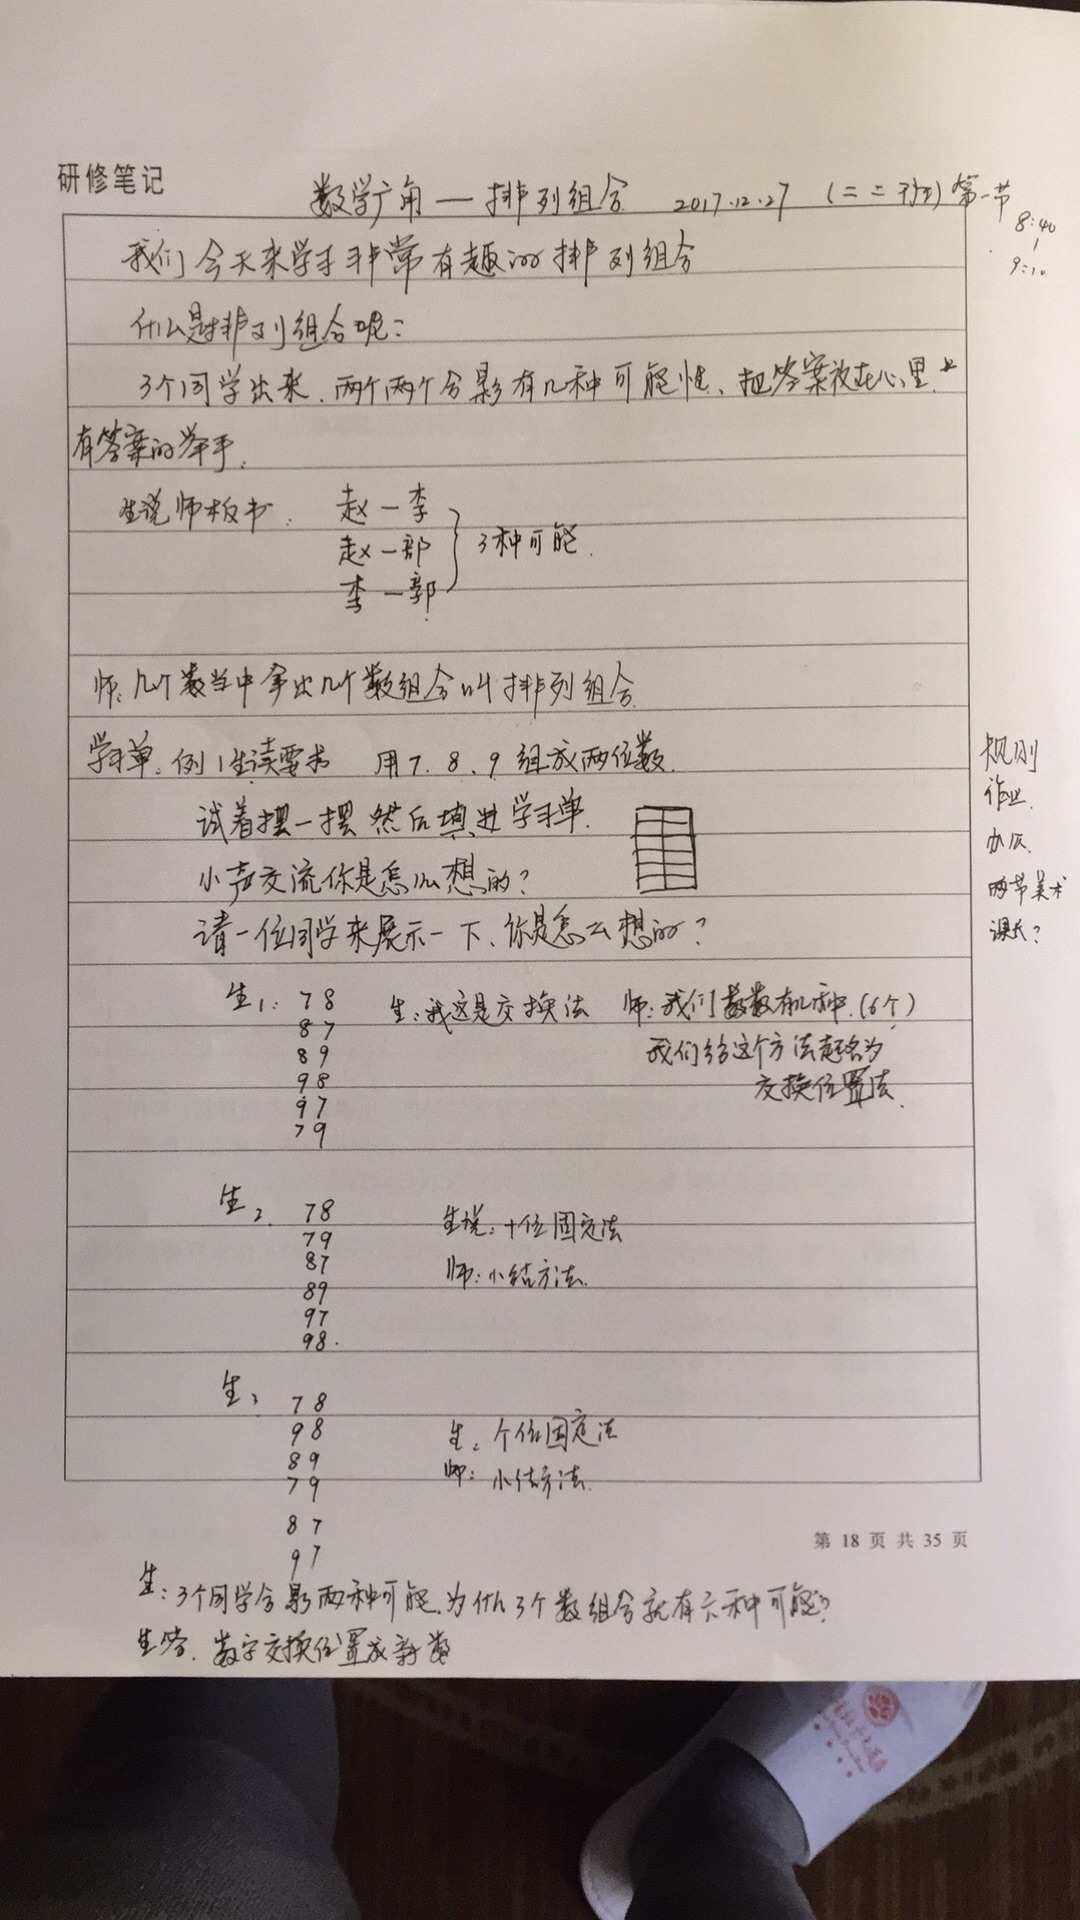 研修笔记
数学广角—排列组合 2017.12.27 (二二班) 第一节
8:40
9:10
我们今天来学习非常有趣的排列组合
什么是排列组合呢?
3个同学出来,两个两个合影有几种可能性,把答案放在心里
有答案的举手.
生说师板书: 赵—李
赵—郭
李—郭
3种可能.
师:几个数当中拿出几个数组合叫排列组合
学习单:例1生读要求 用7、8、9组成两位数.
试着摆一摆 然后填进学习单.
小声交流你是怎么想的?
请一位同学来展示一下、你是怎么想的?
规则
作业.
两节美术
课长?
生1: 78
87
89
98
97
79
生:我这是交换法 师:我们数数有几种.(6个)
我们给这个方法起名为
交换位置法.
生2. 78
79
87
89
97
98.
生说:十位固定法
师:小结方法.
生3 78
98
89
79
87
97
生: 个位固定法
师: 小结方法.
第 18 页 共 35 页
生:3个同学合影两种可能.为什么3个数组合就有六种可能?
生答.数字交换位置成新数